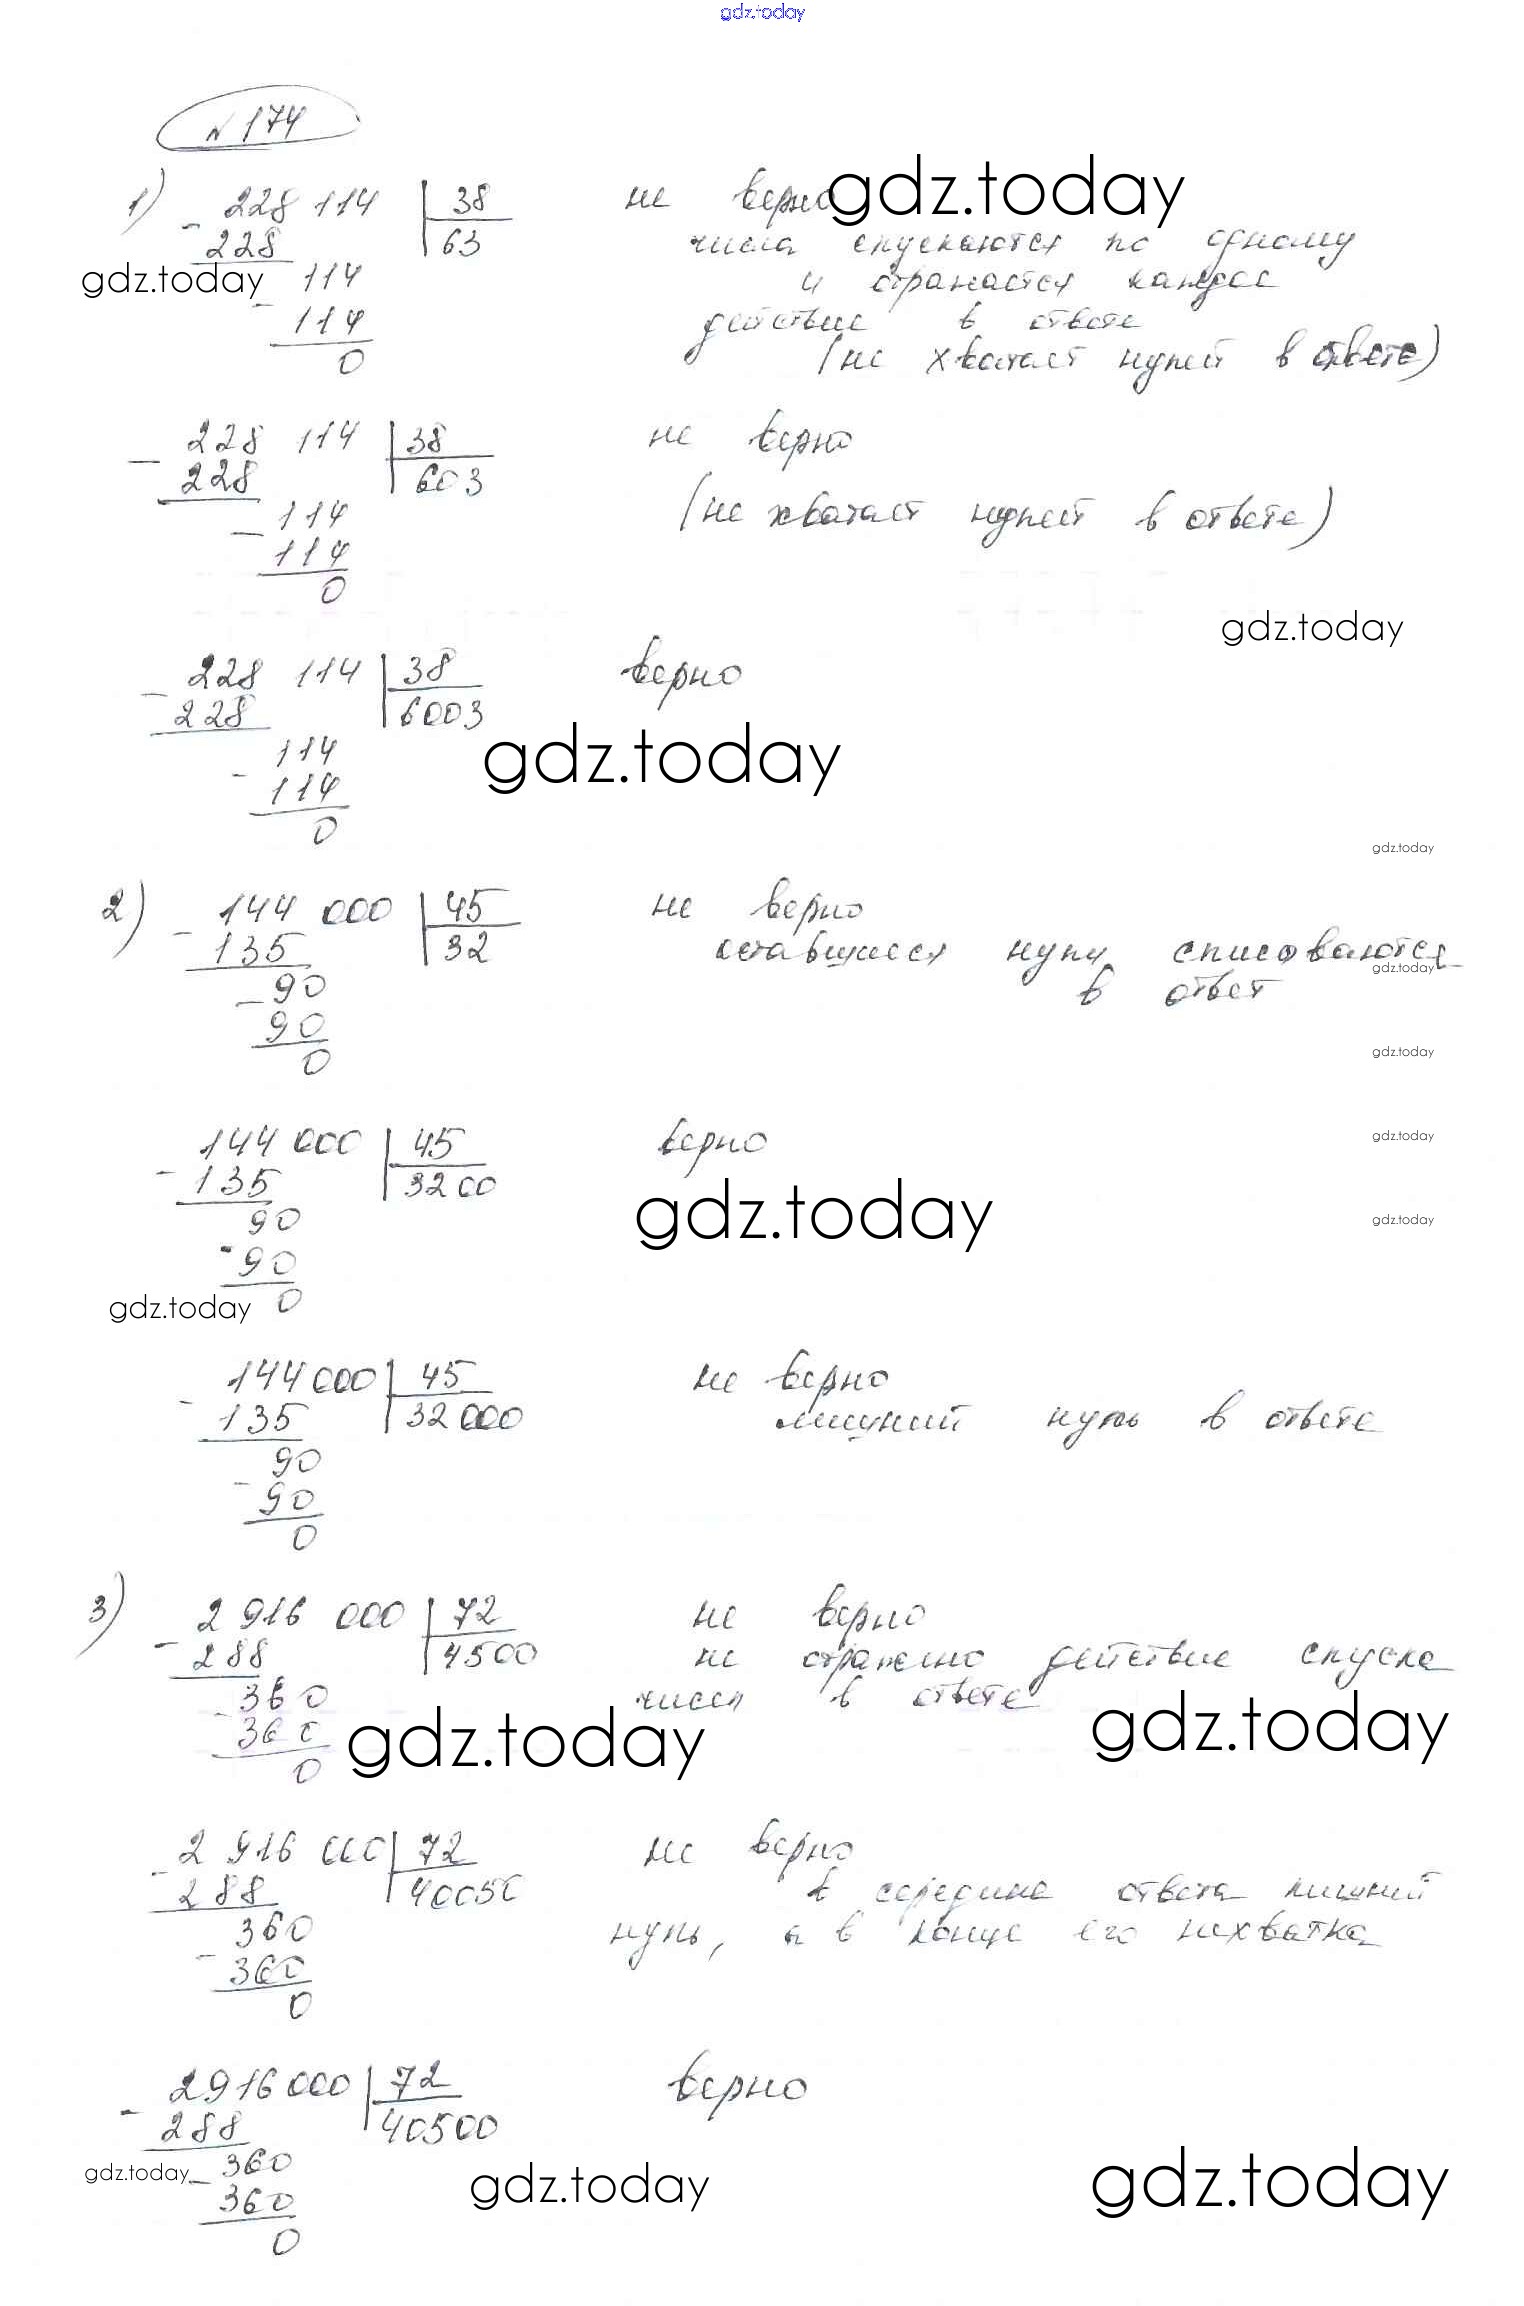 gdz.today
№174
1) - 228 114 | 38 не верно gdz.today
228 63 числа спускаются по одному
gdz.today 114 и отражается каждое
- 114 действие в ответе
0 (не хватает нулей в ответе)
- 228 114 | 38 не верно
228 603
- 114 (не хватает нулей в ответе)
114
0
gdz.today
- 228 114 | 38 верно
228 6003
gdz.today
- 114
114
0
gdz.today
2) - 144 000 | 45 не верно
135 32 оставшиеся нули списоваются
gdz.today
- 90 в ответ
90
0
gdz.today
- 144 000 | 45 верно
gdz.today
135 3200
gdz.today
90 gdz.today
- 90
gdz.today 0
- 144 000 | 45 не верно
135 32 000 лишний нуль в ответе
90
- 90
0
3) - 2 916 000 | 72 не верно
288 4500 не отражено действие спуска
- 360 чисел в ответе
360 gdz.today gdz.today
0
- 2 916 000 | 72 не верно
288 40050 в середине ответа лишний
360 нуль, а в конце его нехватка
- 360
0
- 2916 000 | 72 верно
288 40500
gdz.today - 360 gdz.today gdz.today
360
0